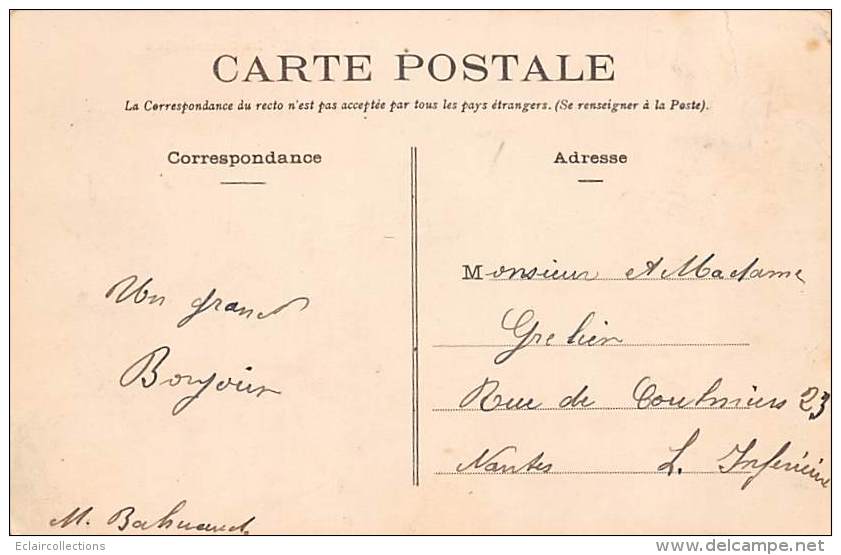 CARTE POSTALE
La Correspondance du recto n'est pas acceptée par tous les pays étrangers. (Se renseigner à la Poste).
Correspondance
Un grand
Bonjour
M.
Adresse
Monsieur et Madame
Rue de Coulmiers 23
Nantes L. Inférieure
Eclaircollections
www.delcampe.net